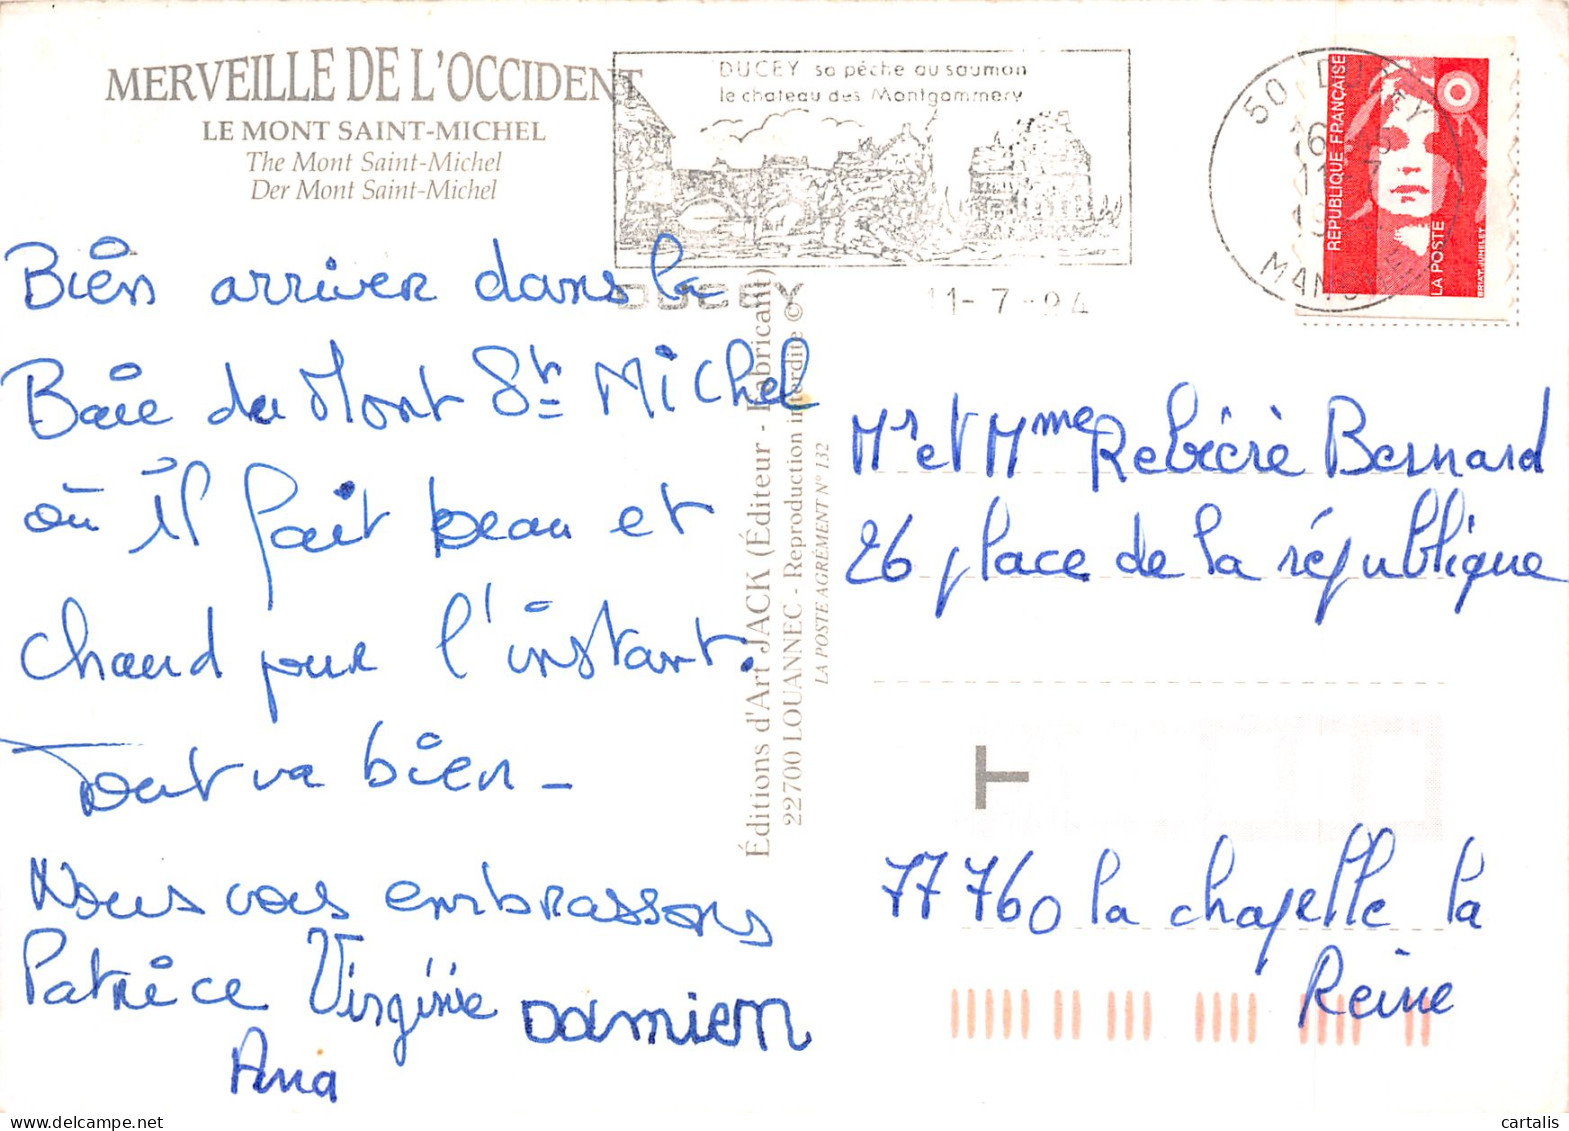 MERVEILLE DE L'OCCIDENT
LE MONT SAINT-MICHEL
The Mont Saint-Michel
Der Mont Saint-Michel
DUCEY sa pêche au saumon
le chateau des Montgommery
DUCEY 11-7-94
50 DUCEY
16
11-7
19
MANCHE
RÉPUBLIQUE FRANÇAISE
LA POSTE
BRIAT-JUMELET
Bien arriver dans la
Baie du Mont St Michel
où il fait beau et
chaud pour l'instant.
Tout va bien -
Nous vous embrassons
Patrice Virginie Damien
Ana
Éditions d'Art JACK (Éditeur - Fabricant)
22700 LOUANNEC - Reproduction interdite ©
LA POSTE AGRÉMENT N° 132
Mr et Mme Rebiérè Bernard
26 place de la république
T
77760 la chapelle la
Reine
cartalis